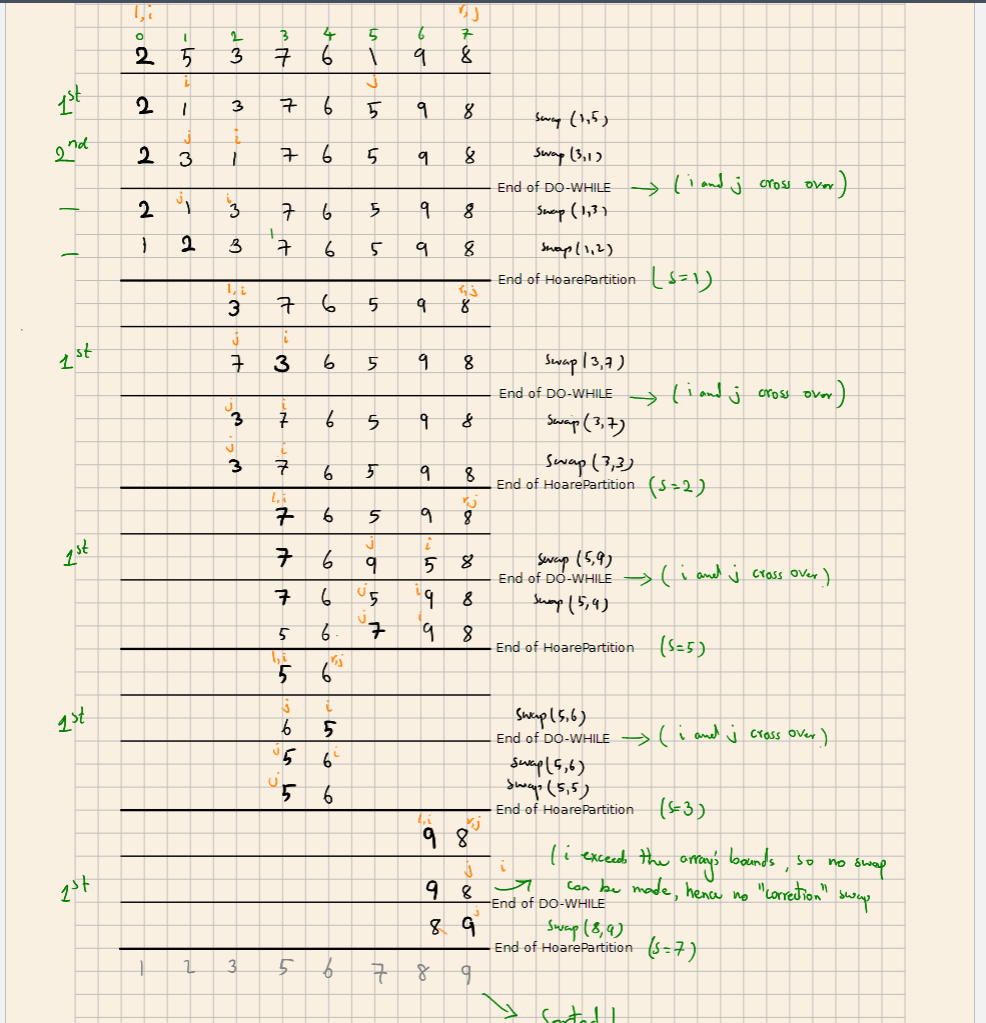 l,i r,j
0 1 2 3 4 5 6 7
2 5 3 7 6 1 9 8
i j
1st 2 1 3 7 6 5 9 8 Swap (1,5)
j i
2nd 2 3 1 7 6 5 9 8 Swap (3,1)
End of DO-WHILE → (i and j cross over)
j i
— 2 1 3 7 6 5 9 8 Swap (1,3)
— 1 2 3 7 6 5 9 8 Swap (1,2)
End of HoarePartition (s=1)
l,i r,j
3 7 6 5 9 8
j i
1st 7 3 6 5 9 8 Swap (3,7)
End of DO-WHILE → (i and j cross over)
j i
3 7 6 5 9 8 Swap (3,7)
j i
3 7 6 5 9 8 Swap (3,3)
End of HoarePartition (s=2)
l,i r,j
7 6 5 9 8
j i
1st 7 6 9 5 8 Swap (5,9)
End of DO-WHILE → (i and j cross over)
j i
7 6 5 9 8 Swap (5,9)
j i
5 6 7 9 8
End of HoarePartition (s=5)
l,i r,j
5 6
j i
1st 6 5 Swap (5,6)
End of DO-WHILE → (i and j cross over)
j i
5 6 Swap (5,6)
j
5 6 Swap (5,5)
End of HoarePartition (s=3)
l,i r,j
9 8
j i
1st 9 8 → (i exceeds the array's bounds, so no swap
can be made, hence no "correction" swap
End of DO-WHILE
j
8 9 Swap (8,9)
End of HoarePartition (s=7)
1 2 3 5 6 7 8 9
Sorted!